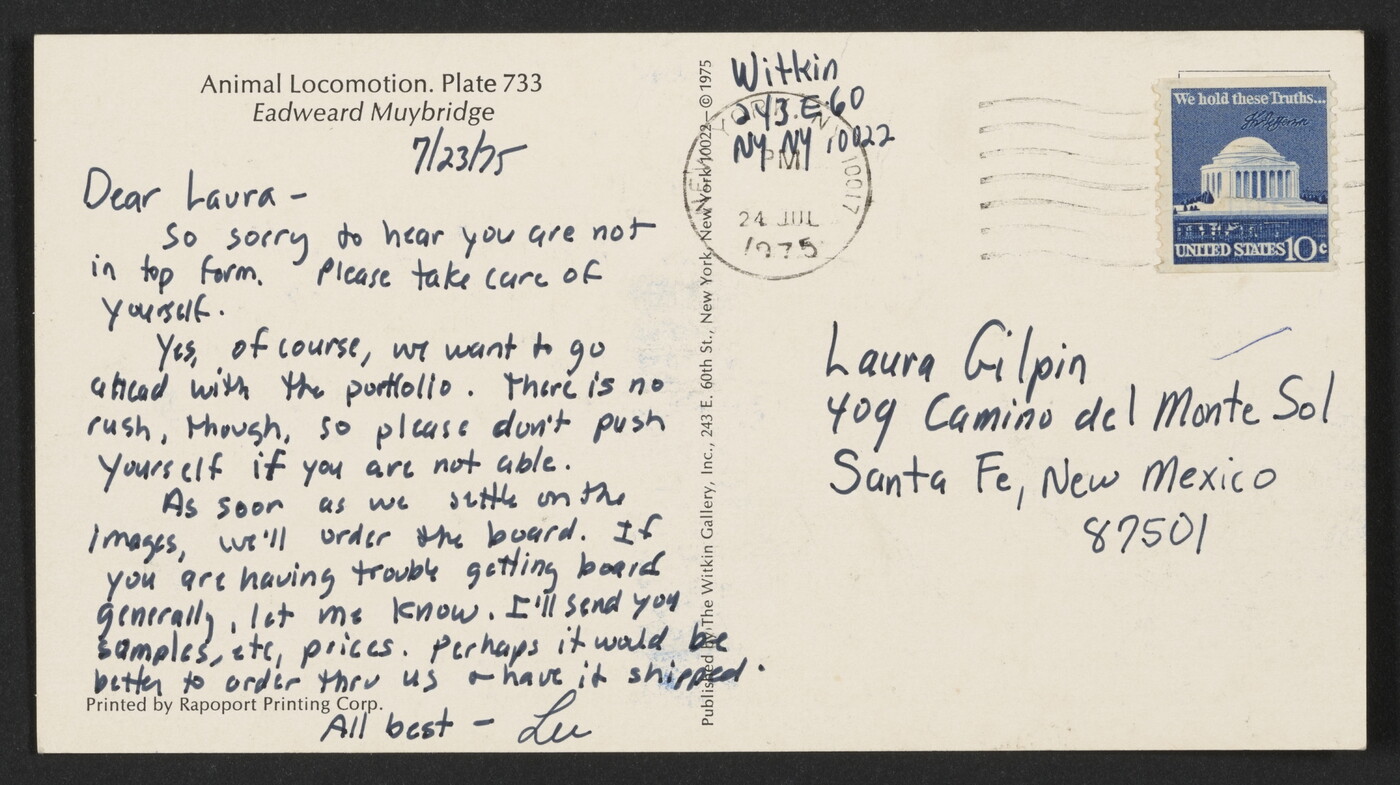 Animal Locomotion. Plate 733
Eadweard Muybridge
7/23/75
Dear Laura -
So sorry to hear you are not
in top form. Please take care of
yourself.
Yes, of course, we want to go
ahead with the portfolio. There is no
rush, though, so please don't push
yourself if you are not able.
As soon as we settle on the
images, we'll order the board. If
you are having trouble getting board
generally, let me know. I'll send you
samples, etc, prices. Perhaps it would be
better to order thru us & have it shipped.
Printed by Rapoport Printing Corp.
All best - Lee
Published by The Witkin Gallery, Inc., 243 E. 60th St., New York, New York 10022 – © 1975
Witkin
243 E. 60
NY NY 10022
NEW YORK, NY 10017
PM
24 JUL
1975
We hold these Truths...
Th Jefferson
UNITED STATES 10c
Laura Gilpin
409 Camino del Monte Sol
Santa Fe, New Mexico
87501